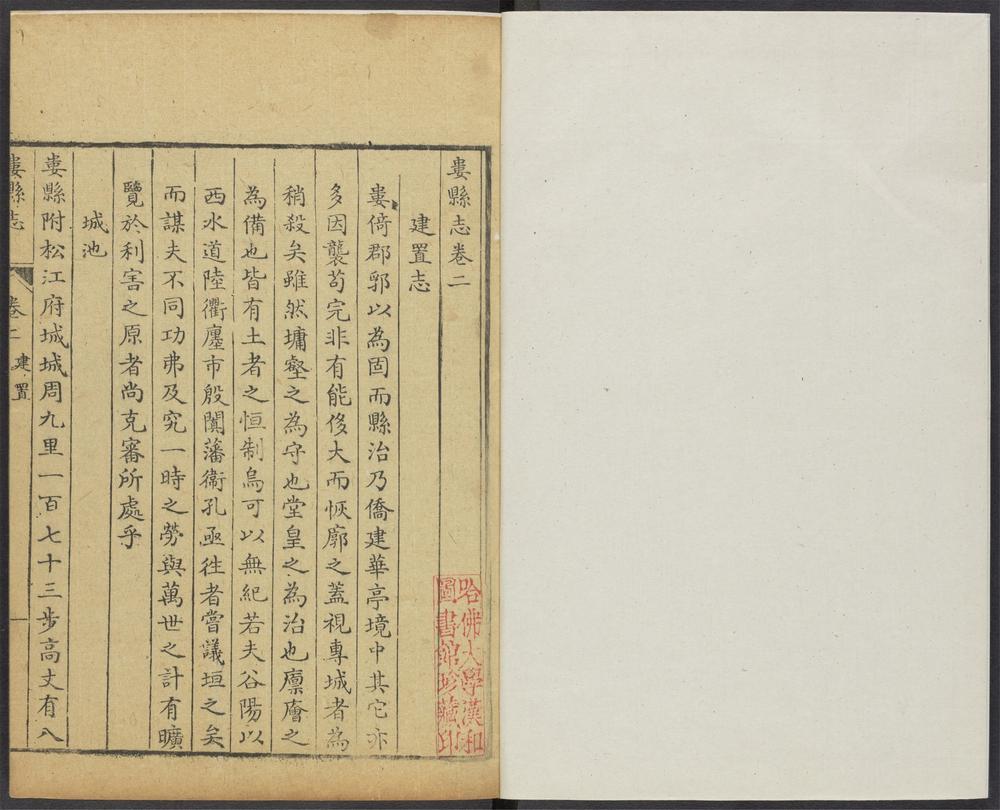 婁縣志卷二
建置志
婁倚郡郛以為固而縣治乃僑建華亭境中其它亦
多因襲苟完非有能侈大而恢廓之蓋視專城者為
稍殺矣雖然墉壑之為守也堂皇之為治也廪廥之
為備也皆有土者之恒制烏可以無紀若夫谷陽以
西水道陸衢廛市殷闐藩衛孔亟往者嘗議垣之矣
而謀夫不同功弗及究一時之勞與萬世之計有曠
覽於利害之原者尚克審所處乎
城池
婁縣附松江府城城周九里一百七十三步高丈有八
婁縣志 卷二 建置 一
哈佛大學漢和
圖書館珍藏印